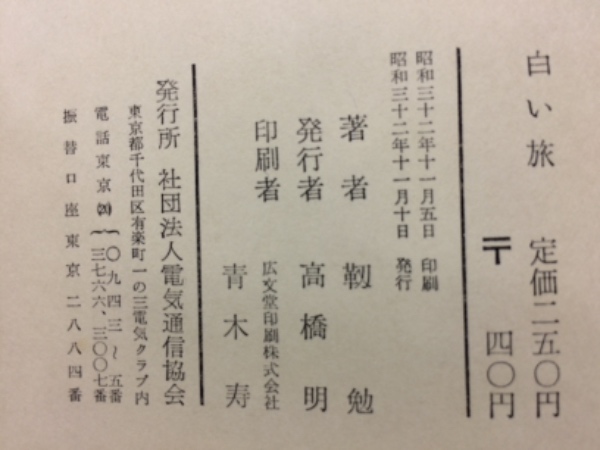 白い旅 定価二五〇円
〒 四〇円
昭和三十二年十一月五日 印刷
昭和三十二年十一月十日 発行
著者 靱勉
発行者 高橋明
印刷者 広文堂印刷株式会社
青木寿
発行所 社団法人電気通信協会
東京都千代田区有楽町一の三電気クラブ内
電話東京 〇九四三~五番
三七六六、三〇〇七番
振替口座東京二八八四番